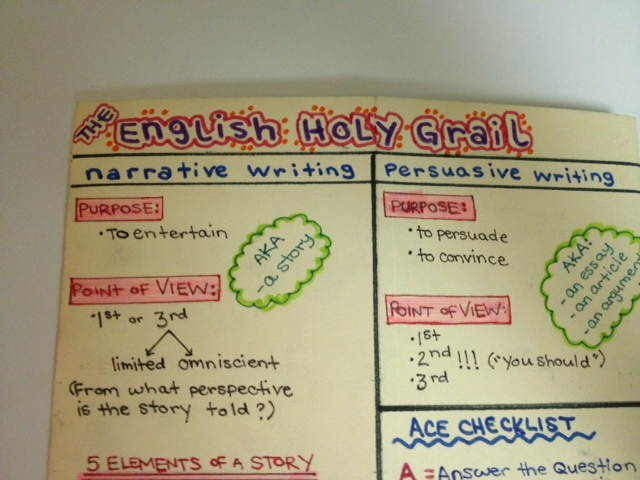 THE English HOLY Grail
narrative writing
PURPOSE:
• To entertain
AKA
- a story
POINT OF VIEW:
• 1st or 3rd
limited omniscient
(From what perspective
is the story told?)
5 ELEMENTS OF A STORY
Persuasive writing
PURPOSE:
• to persuade
• to convince
AKA:
- an essay
- an article
- an argument
POINT OF VIEW:
• 1st
• 2nd !!! ("you should")
• 3rd
ACE CHECKLIST
A = Answer the Question